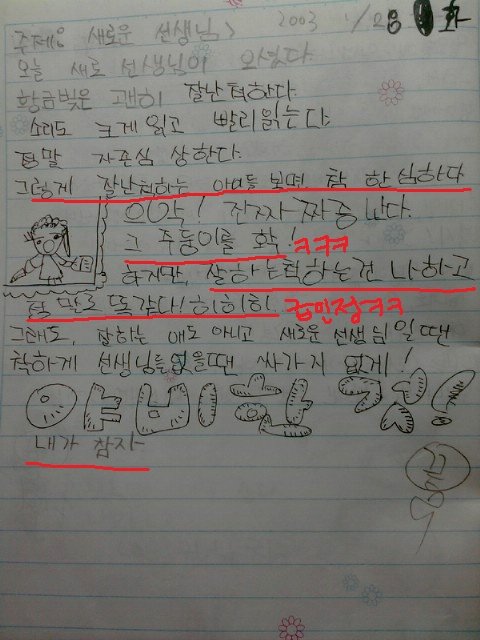 주제: 새로운 선생님> 2003 1/28 화
오늘 새로 선생님이 오셨다
황금빛은 괜히 잘난척한다
소리도 크게 읽고 빨리 읽는다
정말 자존심 상한다
그렇게 잘난척하는 아이들 보면 참 한심하다
으악! 진짜 짜증 난다.
그 주둥이를 확! ㅋㅋㅋ
하지만, 잘하는척하는건 나하고
정말로 똑같다! 히히히 급민정ㅋㅋ
그래도, 잘하는 애도 아니고 새로운 선생님일땐
착하게 선생님을 없을땐 싸가지 없게!
내가 참자
끝